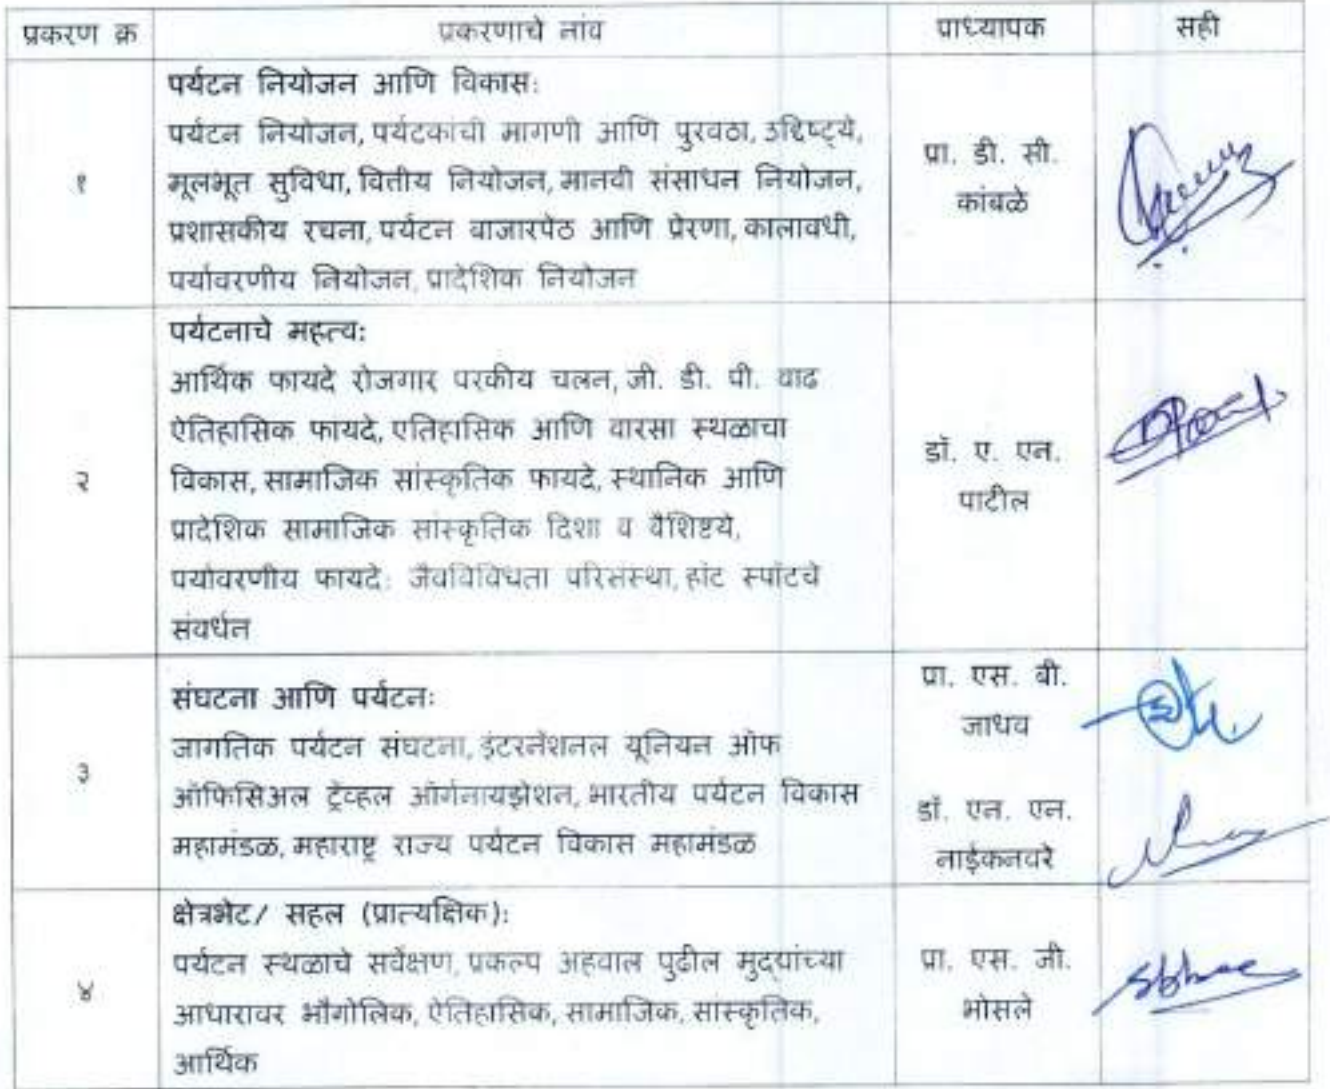 प्रकरण क्र प्रकरणाचे नांव प्राध्यापक सही
पर्यटन नियोजन आणि विकास:
पर्यटन नियोजन, पर्यटकांची मागणी आणि पुरवठा, उद्दिष्ट्ये,
मूलभूत सुविधा, वित्तीय नियोजन, मानवी संसाधन नियोजन,
प्रशासकीय रचना, पर्यटन बाजारपेठ आणि प्रेरणा, कालावधी,
पर्यावरणीय नियोजन, प्रादेशिक नियोजन
१
प्रा. डी. सी.
कांबळे
पर्यटनाचे महत्व:
आर्थिक फायदे रोजगार परकीय चलन, जी. डी. पी. वाढ
ऐतिहासिक फायदे, एतिहासिक आणि वारसा स्थळाचा
विकास, सामाजिक सांस्कृतिक फायदे, स्थानिक आणि
प्रादेशिक सामाजिक सांस्कृतिक दिशा व वैशिष्टये,
पर्यावरणीय फायदे: जैवविविधता परिसंस्था, हॉट स्पॉटचे
संवर्धन
२
डॉ. ए. एन.
पाटील
संघटना आणि पर्यटन:
जागतिक पर्यटन संघटना, इंटरनॅशनल यूनियन ऑफ
ऑफिसिअल ट्रॅव्हल ऑर्गनायझेशन, भारतीय पर्यटन विकास
महामंडळ, महाराष्ट्र राज्य पर्यटन विकास महामंडळ
३
प्रा. एस. बी.
जाधव
डॉ. एन. एन.
नाईकनवरे
क्षेत्रभेट/ सहल (प्रात्यक्षिक):
पर्यटन स्थळाचे सर्वेक्षण, प्रकल्प अहवाल पुढील मुद्यांच्या
आधारावर भौगोलिक, ऐतिहासिक, सामाजिक, सांस्कृतिक,
आर्थिक
४
प्रा. एस. जी.
भोसले